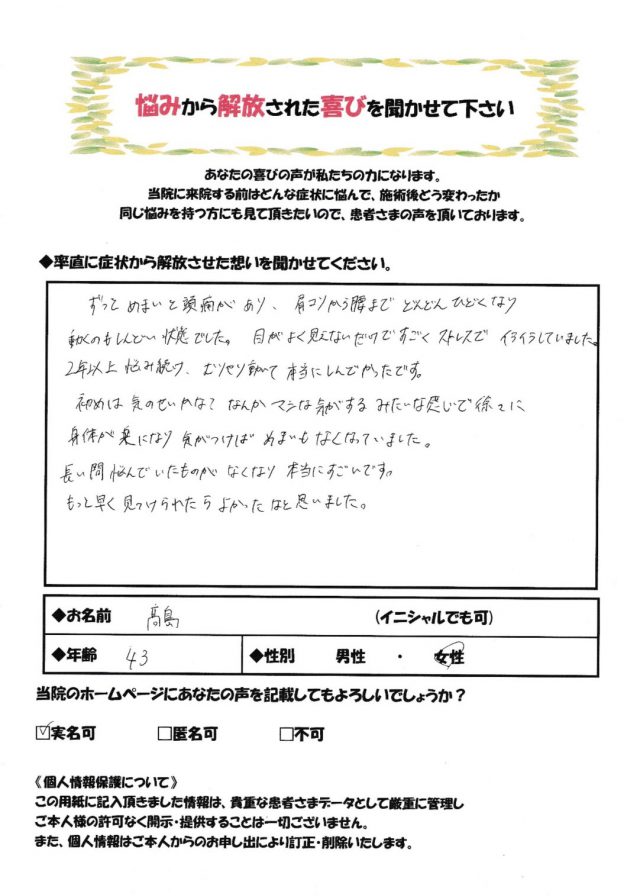 悩みから解放された喜びを聞かせて下さい
あなたの喜びの声が私たちの力になります。
当院に来院する前はどんな症状に悩んで、施術後どう変わったか
同じ悩みを持つ方にも見て頂きたいので、患者さまの声を頂いております。
◆率直に症状から解放させた想いを聞かせてください。
ずっと めまいと頭痛が あり、肩コリから腰まで どんどん ひどくなり
動くのもしんどい 状態でした。 目がよく見えないだけで すごく ストレスで イライラしていました。
2年以上 悩み続け、むりやり動いて 本当にしんどかったです。
初めは 気のせいかな? なんか マシな気がする みたいな感じで 徐々に
身体が 楽になり 気がつけば めまいも なくなっていました。
長い間悩んでいたものが なくなり 本当にすごいです。
もっと早く見つけられたら よかったなと思いました。
◆お名前 髙島 (イニシャルでも可)
◆年齢 43 ◆性別 男性 ・ 女性
当院のホームページにあなたの声を記載してもよろしいでしょうか?
☑実名可 □匿名可 □不可
《個人情報保護について》
この用紙に記入頂きました情報は、貴重な患者さまデータとして厳重に管理し
ご本人様の許可なく開示・提供することは一切ございません。
また、個人情報はご本人からのお申し出により訂正・削除いたします。